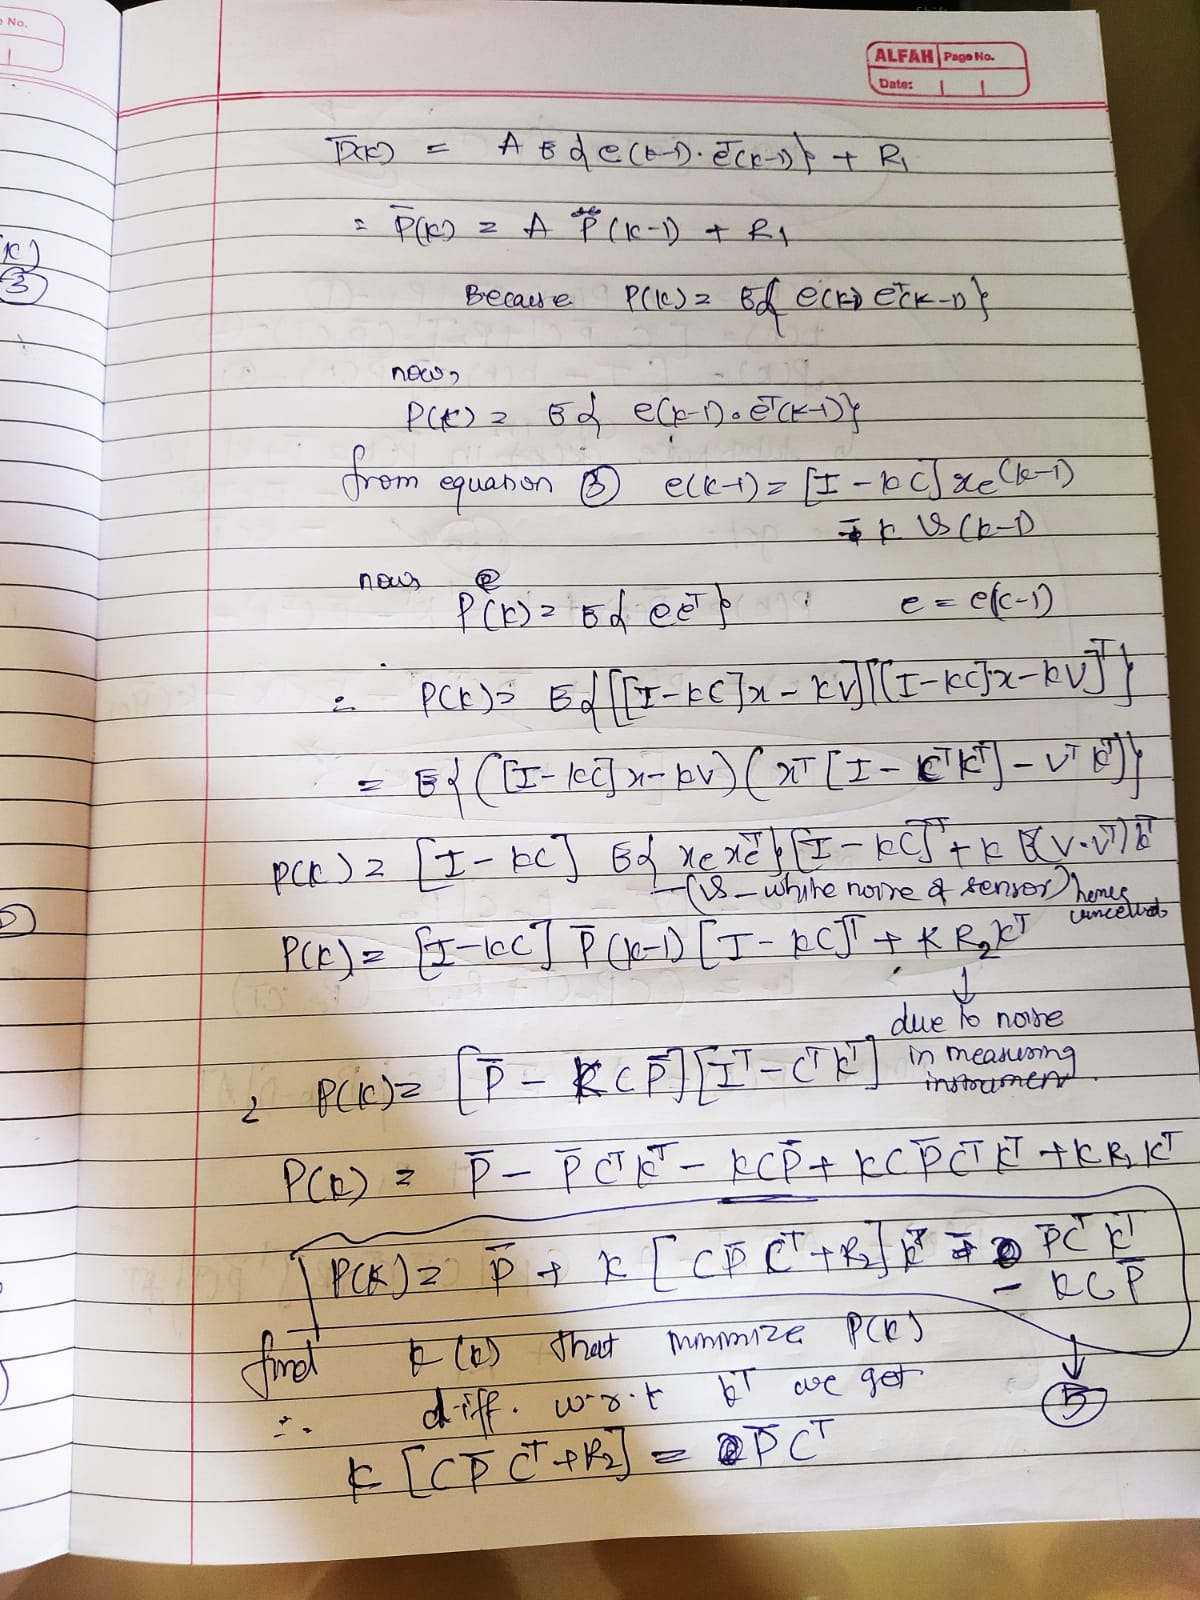 e No.
ALFAH Page No.
Date:
P̄(k) = A E{e(k-1)·eᵀ(k-1)} + R₁
= P̄(k) = A P̄(k-1) + R₁
(k)
③
Because P(k) = E{e(k) eᵀ(k-1)}
now,
P(k) = E{ e(k-1)·eᵀ(k-1)}
from equation ③ e(k-1) = [I - KC] xₑ(k-1)
- K v(k-1)
now
P(k) = E{ eeᵀ} e = e(k-1)
∴ P(k) = E{[[I-KC]x - KV][[I-KC]x-KV]ᵀ}
= E{([I-KC]x-KV)(xᵀ[I - CᵀKᵀ] - VᵀKᵀ)}
P(k) = [I-KC] E{xₑxₑᵀ}[I-KC]ᵀ + K E(V·Vᵀ)Kᵀ
(v - white noise of sensor) hence
cancelled
P(k) = [I-KC] P̄(k-1) [I-KC]ᵀ + K R₂Kᵀ
↓
due to noise
in measuring
instrument.
P(k) = [P̄ - KCP̄][Iᵀ - CᵀKᵀ]
P(k) = P̄ - P̄CᵀKᵀ - KCP̄ + KCP̄CᵀKᵀ + KR₂Kᵀ
P(k) = P̄ + K[CP̄Cᵀ+R₂]Kᵀ - P̄CᵀKᵀ
- KCP̄
find K(k) that minimize P(k)
↓
⑤
∴ diff. w.r.t Kᵀ we get
K[CP̄Cᵀ+R₂] = P̄Cᵀ